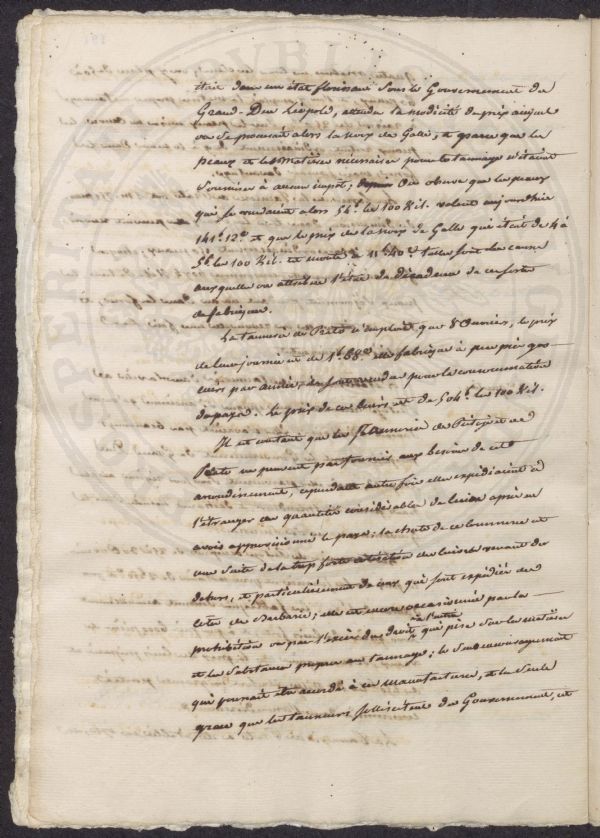 était dans un état florissant sous le Gouvernement du
Grand-Duc Léopold, attendu la modicité du prix auquel
on se procurait alors la noix de Galle, et parceque les
peaux et les matières nécessaires pour le tannage n'étaient
soumises à aucun impôt, On observe que les peaux
qui se vendaient alors 54.f les 100 Kil. valent aujourd'hui
141.f 12.c et que le prix de la noix de Galle qui était de 4 à
5.f les 100 Kil. est monté à 11.f 40.c telles sont les causes
auxquelles on attribue l'état de décadence de ces sortes
de fabriques.
La tannerie de Prato n'emploie que 8 Ouvriers, le prix
de leur journée est de 1.f 88.c elle fabrique à peu près
cuirs par année, qui sont vendus pour la consommation
du pays. Le prix de ces cuirs est de 504.f les 100 Kil.
Il est constant que les Tanneries de Pistoja et de
Prato ne peuvent pas fournir aux besoins de cet
arrondissement, cependant autrefois elles expédiaient à
l'étranger une quantité considérable de cuirs après en
avoir approvisionné le pays: la chute de ce commerce est
une suite de la trop forte des cuirs venant du
dehors, et particulièrement de ceux qui sont expédiés des
côtes de Barbarie; elle est encore occasionnée par la
prohibition ou par l'excès des droits à l'entrée, qui pèse sur les matières
et les substances propres au tannage; le seul encouragement
qui pourrait être accordé à ces manufactures, et la seule
grace que les tanneurs sollicitent du Gouvernement, est